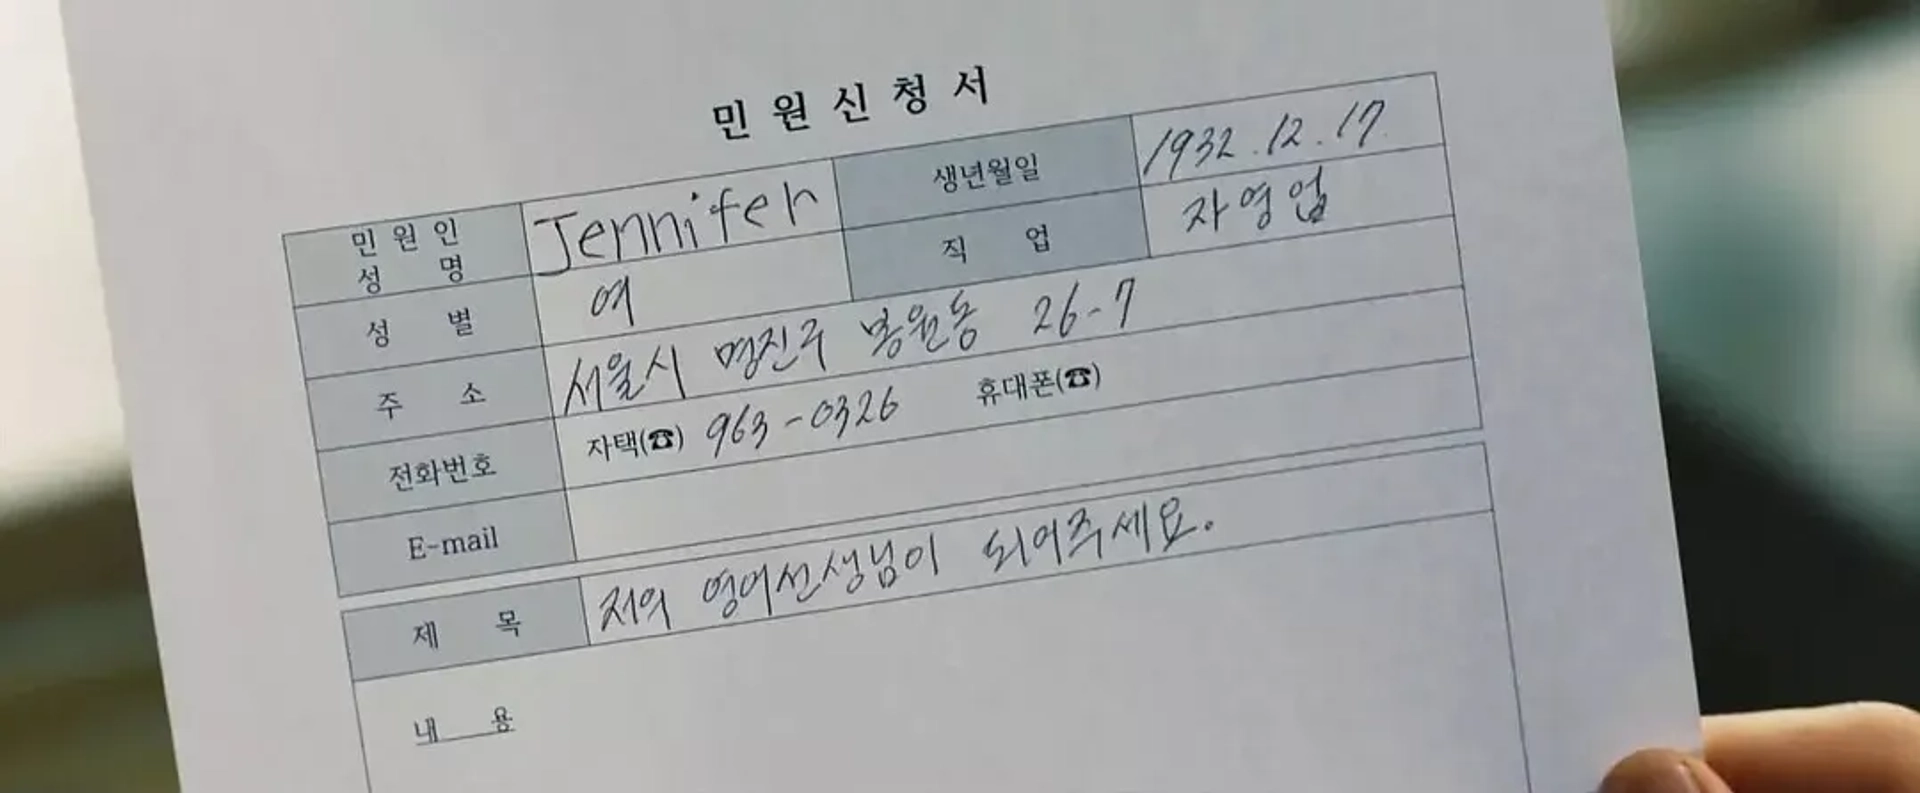 민 원 신 청 서
민 원 인 성 명 Jennifer 생년월일 1932.12.17.
성 별 여 직 업 자영업
주 소 서울시 명진구 봉원동 26-7
전화번호 자택(☎) 963-0326 휴대폰(☎)
E-mail
제 목 저의 영어선생님이 되어주세요.
내 용